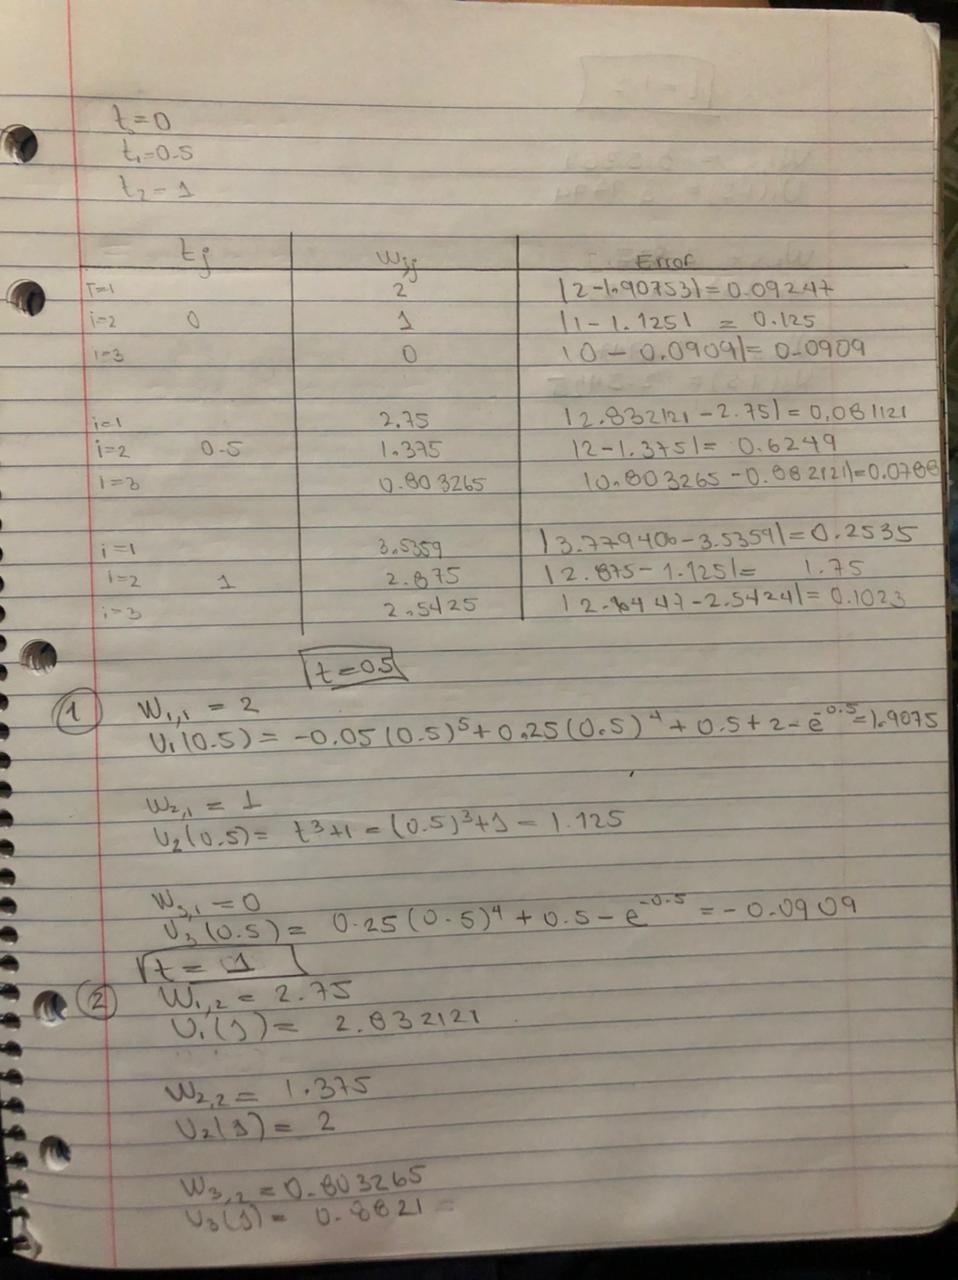 t=0
t₁=0.5
t₂=1
tj Wij Error
i=1 2 |2-1.90753|=0.09247
i=2 0 1 |1-1.125| = 0.125
i=3 0 |0-0.0909|=0.0909
i=1 2.75 |2.832121-2.75|=0.081121
i=2 0.5 1.375 |2-1.375|=0.6249
i=3 0.803265 |0.803265-0.882121|=0.0788
i=1 3.5359 |3.779406-3.5359|=0.2535
i=2 1 2.875 |2.875-1.125|= 1.75
i=3 2.5425 -2.5424|=0.1023
t=0.5
① W₁,₁ = 2
U₁(0.5) = -0.05(0.5)⁵+0.25(0.5)⁴+0.5+2-e⁻⁰·⁵=1.9075
W₂,₁ = 1
U₂(0.5)= t³+1=(0.5)³+1=1.125
W₃,₁=0
U₃(0.5)= 0.25(0.5)⁴+0.5-e⁻⁰·⁵=-0.0909
t= 1
② W₁,₂ = 2.75
U₁(1)= 2.832121
W₂,₂= 1.375
U₂(1)= 2
W₃,₂=0.803265
U₃(1)= 0.8821 =